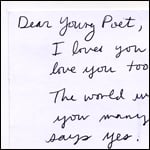 Dear Young Poet,
I loved you
love you too
The world w
you many
says yes.